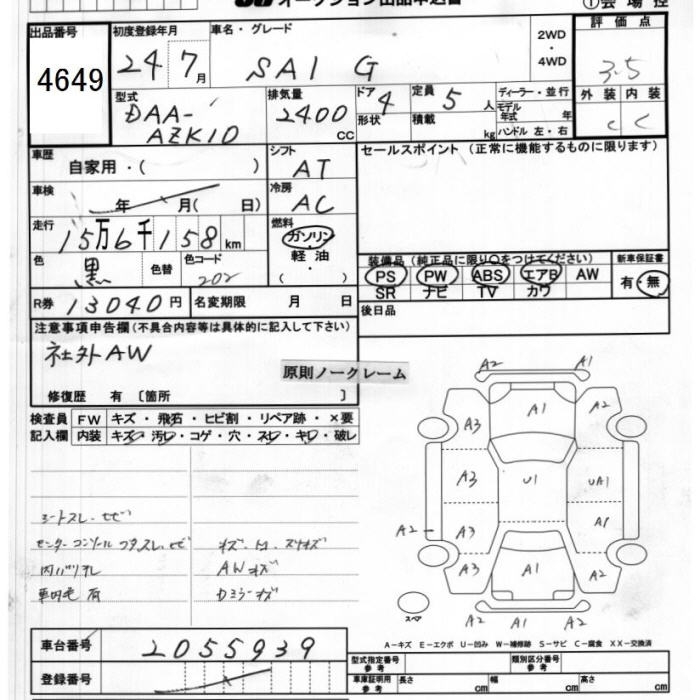 オークション出品申込書
①会場控
出品番号
4649
初度登録年月
24 7月
車名・グレード
SAI G
2WD
・
4WD
評価点
3.5
型式
DAA-
AZK10
排気量
2400
CC
ドア
4
形状
定員
5人
積載
kg
ディーラー・並行
モデル
年式 年
ハンドル 左・右
外装 内装
C C
車歴
自家用・( )
シフト
AT
セールスポイント (正常に機能するものに限ります)
車検
年 月( 日)
冷房
AC
走行
15万6千158km
燃料
ガソリン
軽油
・( )
色
黒
色替
色コード
202
装備品(純正品に限り○をつけてください)
PS PW ABS エアB AW
SR ナビ TV カワ
新車保証書
有・無
R券 13040円
名変期限 月 日
後日品
注意事項申告欄(不具合内容等は具体的に記入して下さい)
社外AW
原則ノークレーム
修復歴 有 〔箇所 〕
検査員
記入欄
FW キズ・飛石・ヒビ割・リペア跡・×要
内装 キズ・汚レ・コゲ・穴・スレ・キレ・破レ
シートスレ・セビ
センターコンソールフタスレ・セビ
内バリキレ
車内毛有
AWキズ
Dミラーキズ
A2 A1
A1
A2
A3
A3
U1
UA1
A2
A3
A1
A3
A1
A2
スペア
A2 A1 A2
A-キズ E-エクボ U-凹み W-補修跡 S-サビ C-腐食 XX-交換済
車台番号
2055939
登録番号
型式指定番号
参考
類別区分番号
参考
車庫証明用
参考
長さ cm
幅 cm
高さ cm